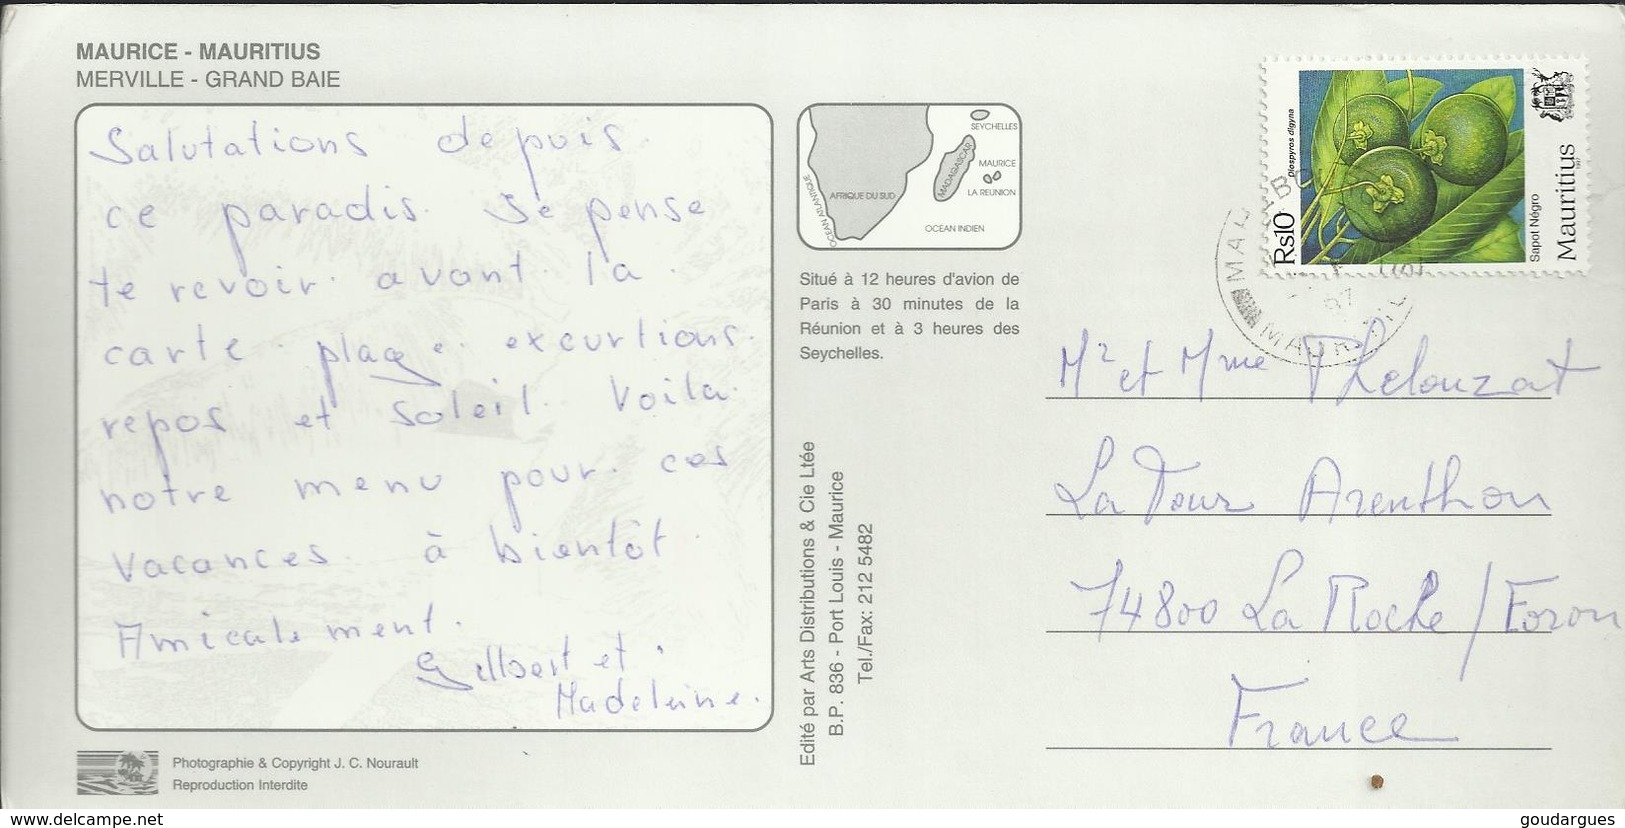 MAURICE - MAURITIUS
MERVILLE - GRAND BAIE
Salutations depuis
ce paradis. Je pense
te revoir avant la
carte. plage. excurtions.
repos et soleil. Voila
notre menu pour ces
vacances. à bientôt.
Amicalement.
Gilbert et
Madeleine.
Photographie & Copyright J. C. Nourault
Reproduction Interdite
SEYCHELLES
MADAGASCAR
MAURICE
LA REUNION
AFRIQUE DU SUD
OCEAN ATLANTIQUE
OCEAN INDIEN
Situé à 12 heures d'avion de
Paris à 30 minutes de la
Réunion et à 3 heures des
Seychelles.
Edité par Arts Distributions & Cie Ltée
B.P. 836 - Port Louis - Maurice
Tel./Fax: 212 5482
Rs10
Diospyros digyna
Sapot Négro
Mauritius
1997
Mr et Mme Phelouzat
La Tour Arenthon
74800 La Roche / Foron
France
www.delcampe.net
goudargues